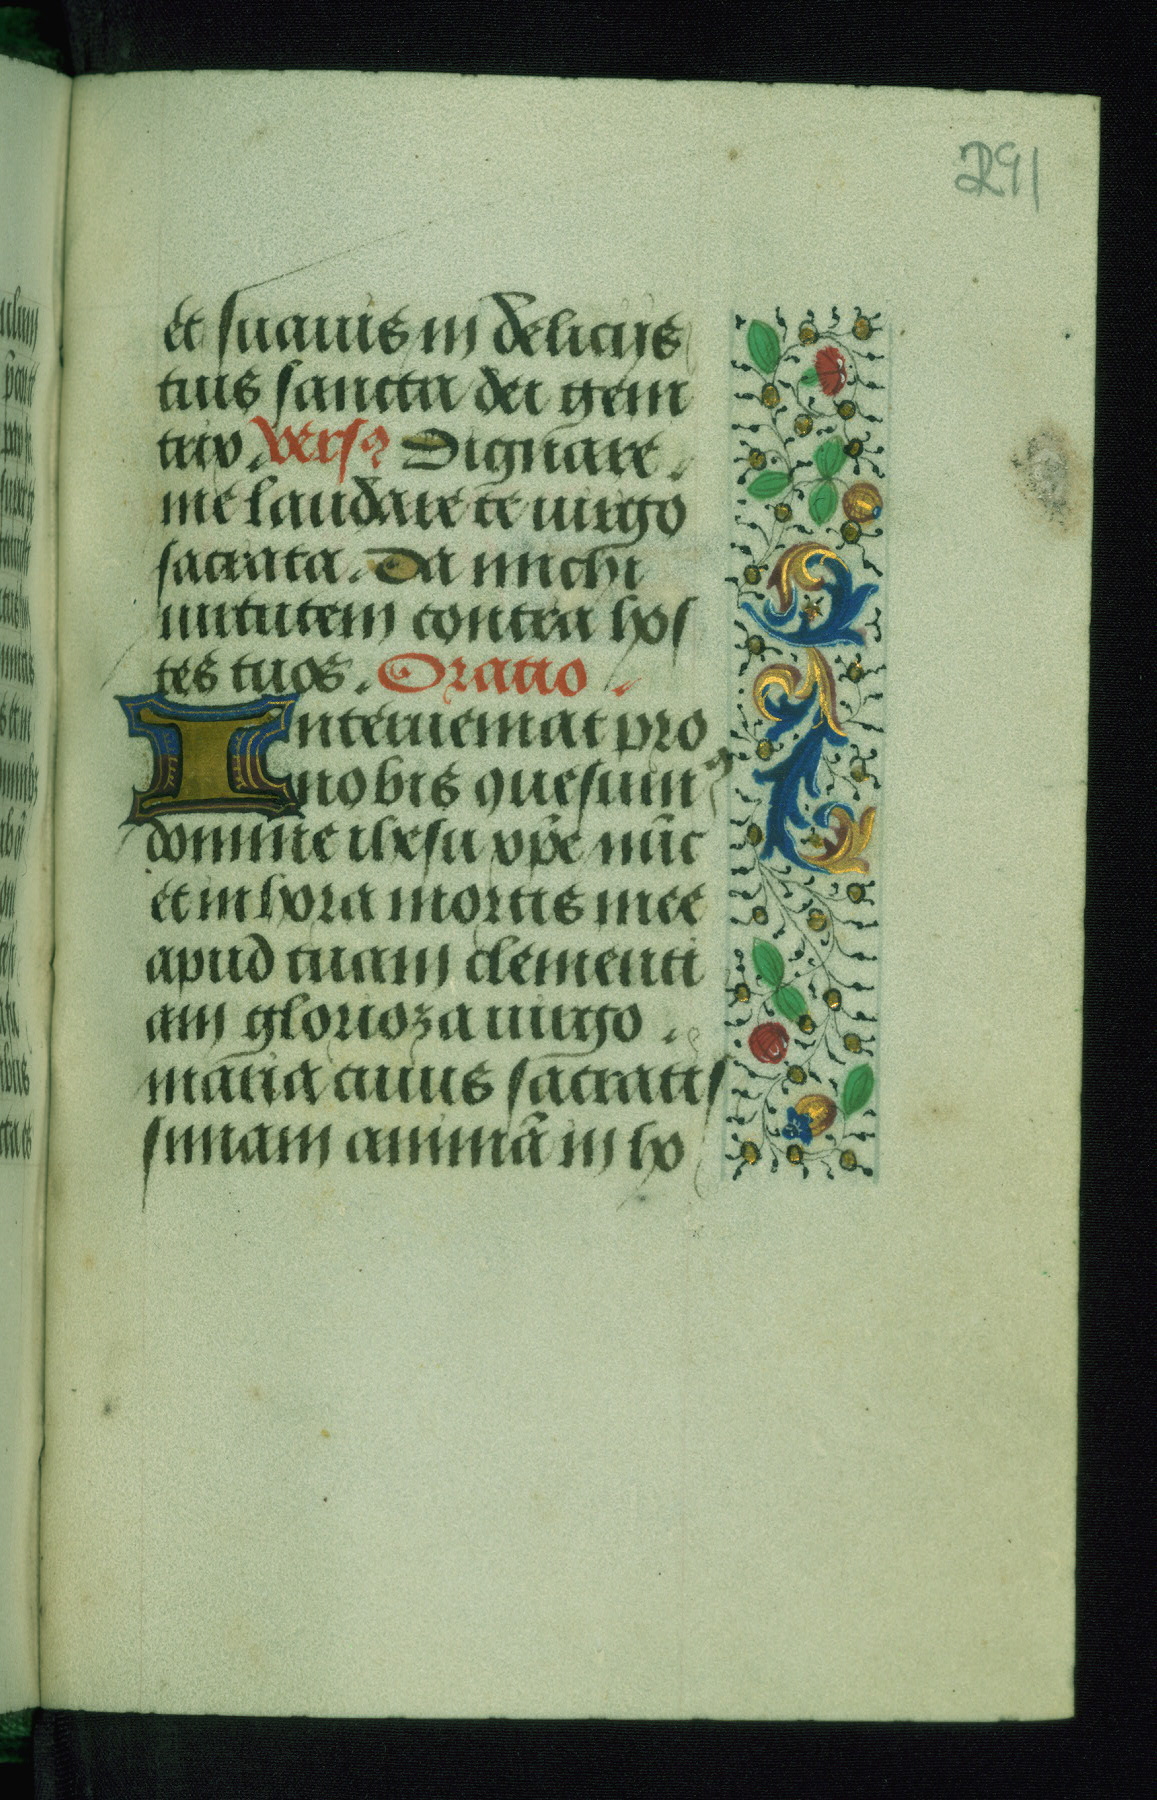 291
et suauis in delicijs
tuis sancta dei geni
trix. Vers9 Dignare
me laudare te uirgo
sacrata. Da michi
uirtutem contra hos
tes tuos. Oratio
Interueniat pro
nobis quesum9
domine ihesu xp̄e nūc
et in hora mortis mee
apud tuam clementi
am glorioza uirgo
maria cuius sacratis
simam animā in ho